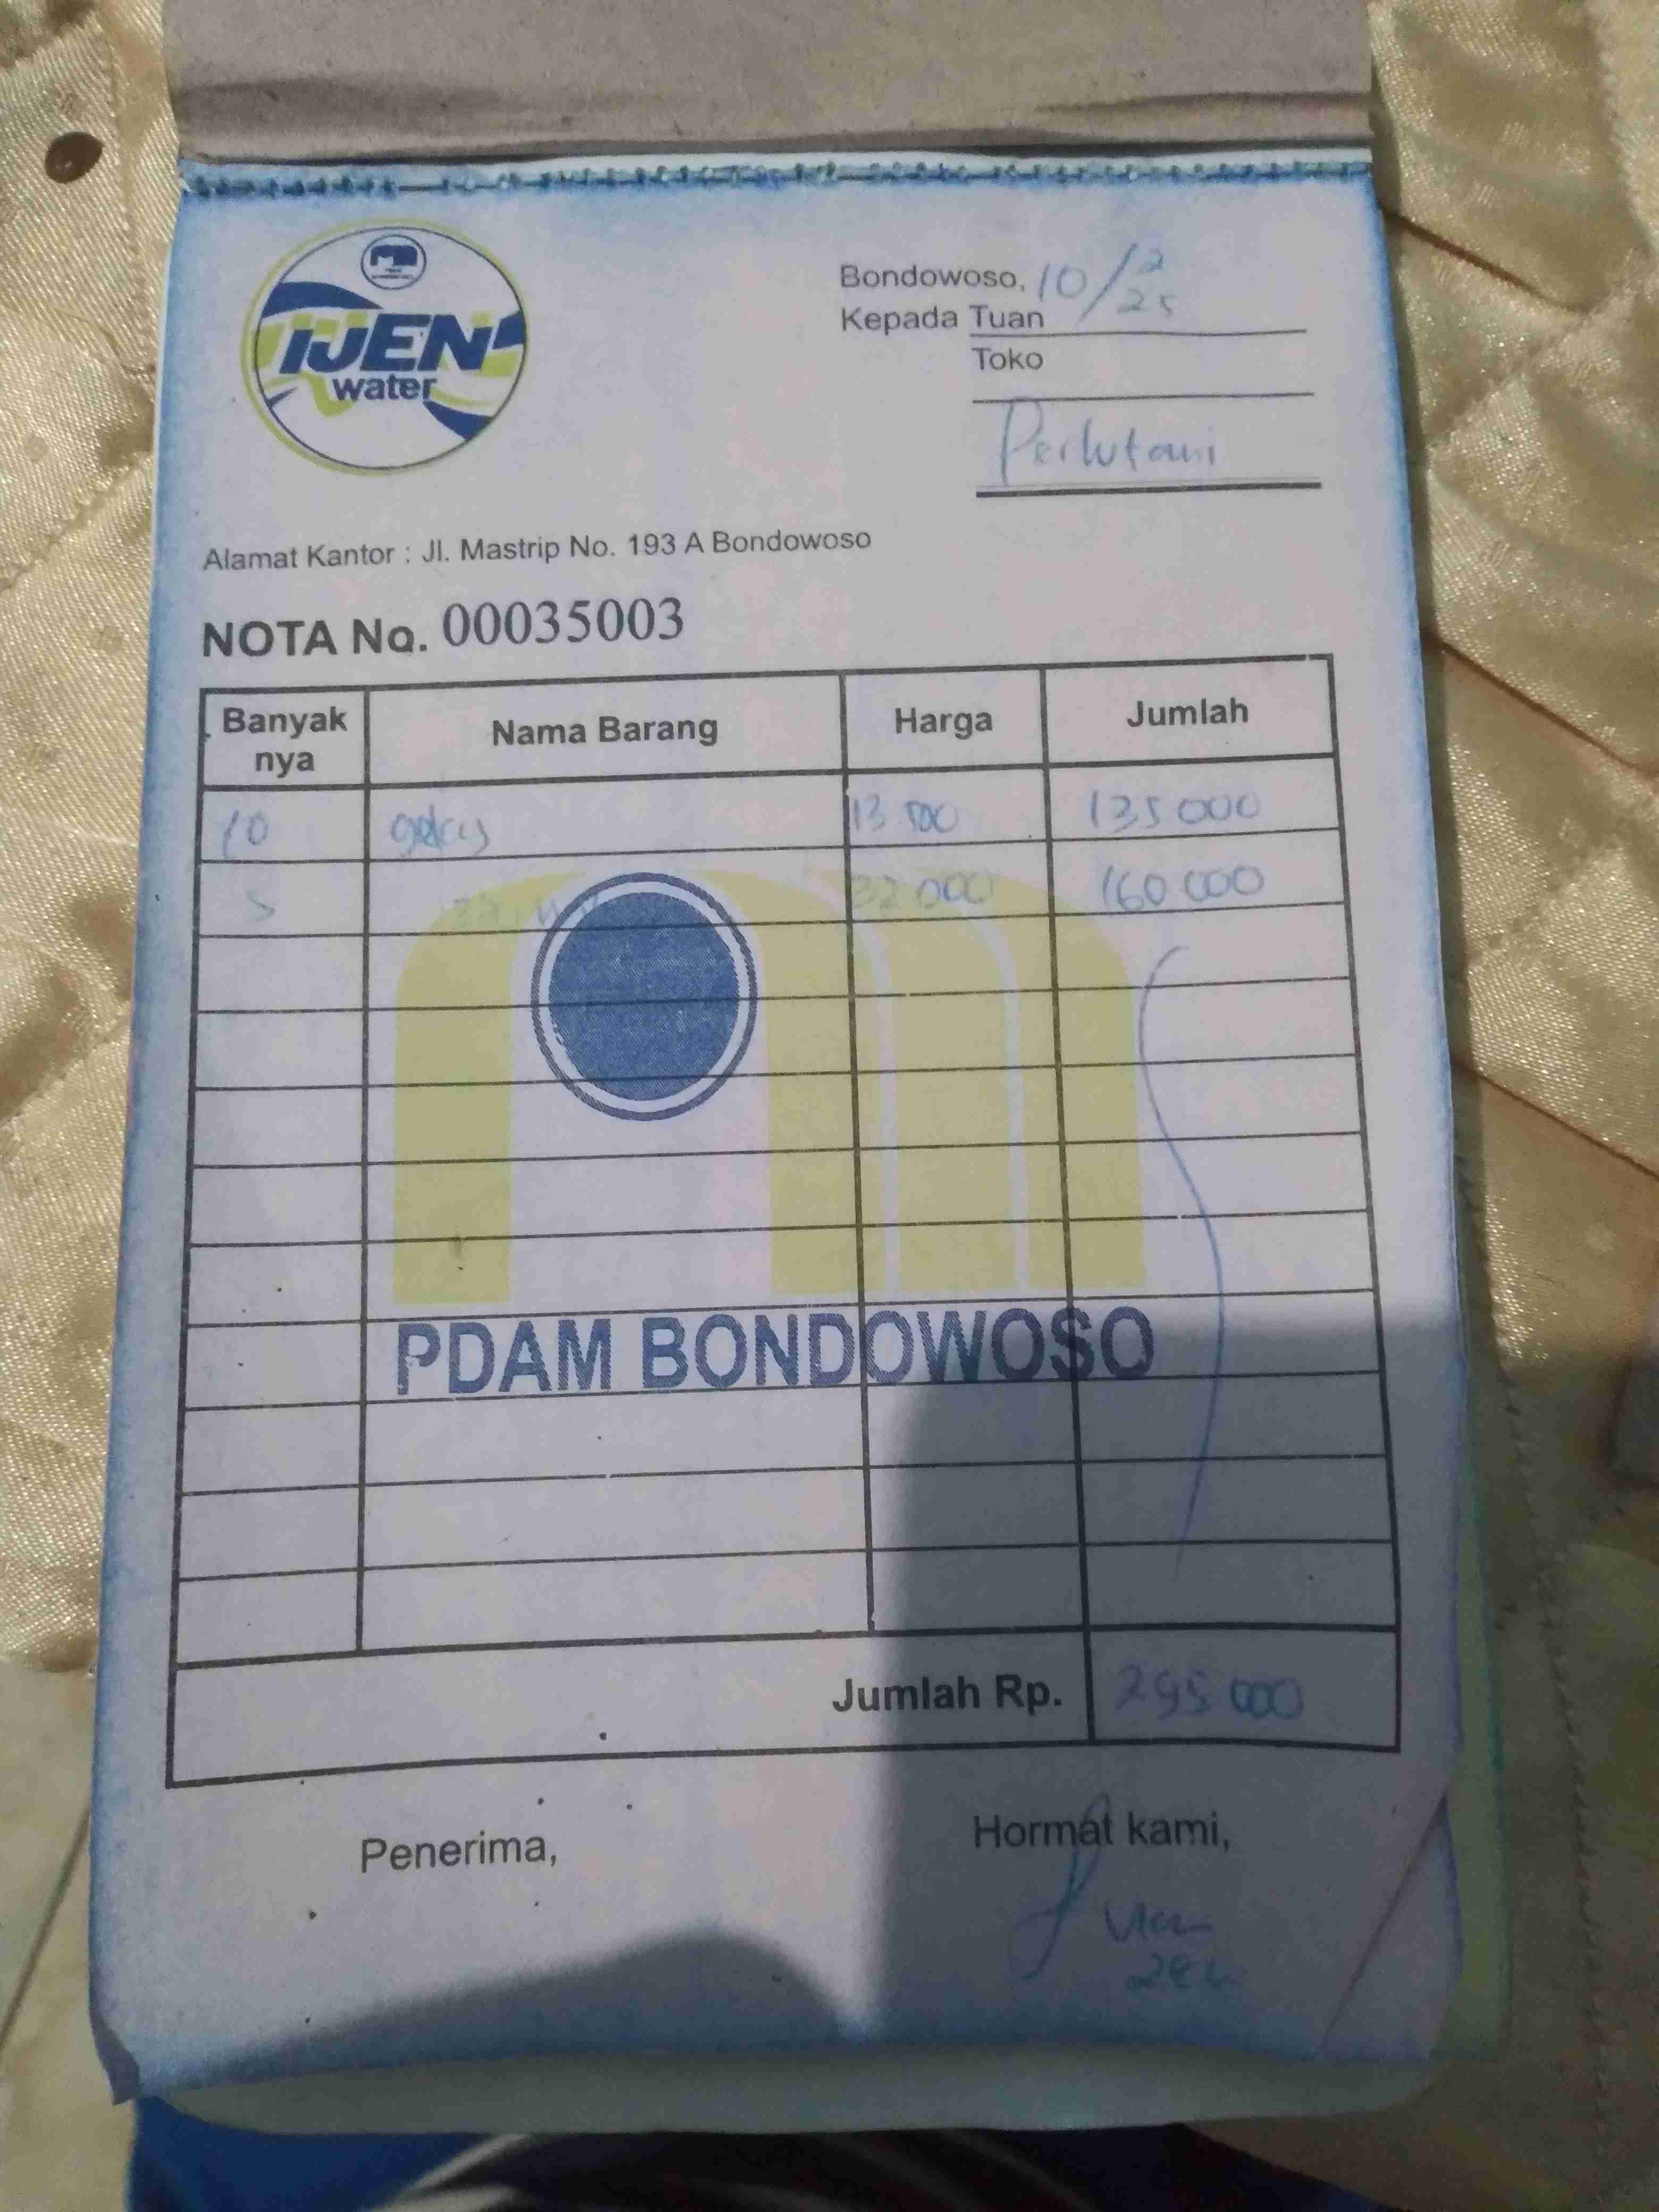 IJEN
water
Bondowoso, 10/2 25
Kepada Tuan
Toko
Perhutani
Alamat Kantor : Jl. Mastrip No. 193 A Bondowoso
NOTA No. 00035003
Banyak nya Nama Barang Harga Jumlah
10 13 500 135 000
5 32 000 160 000
PDAM BONDOWOSO
Jumlah Rp. 295 000
Penerima, Hormat kami,